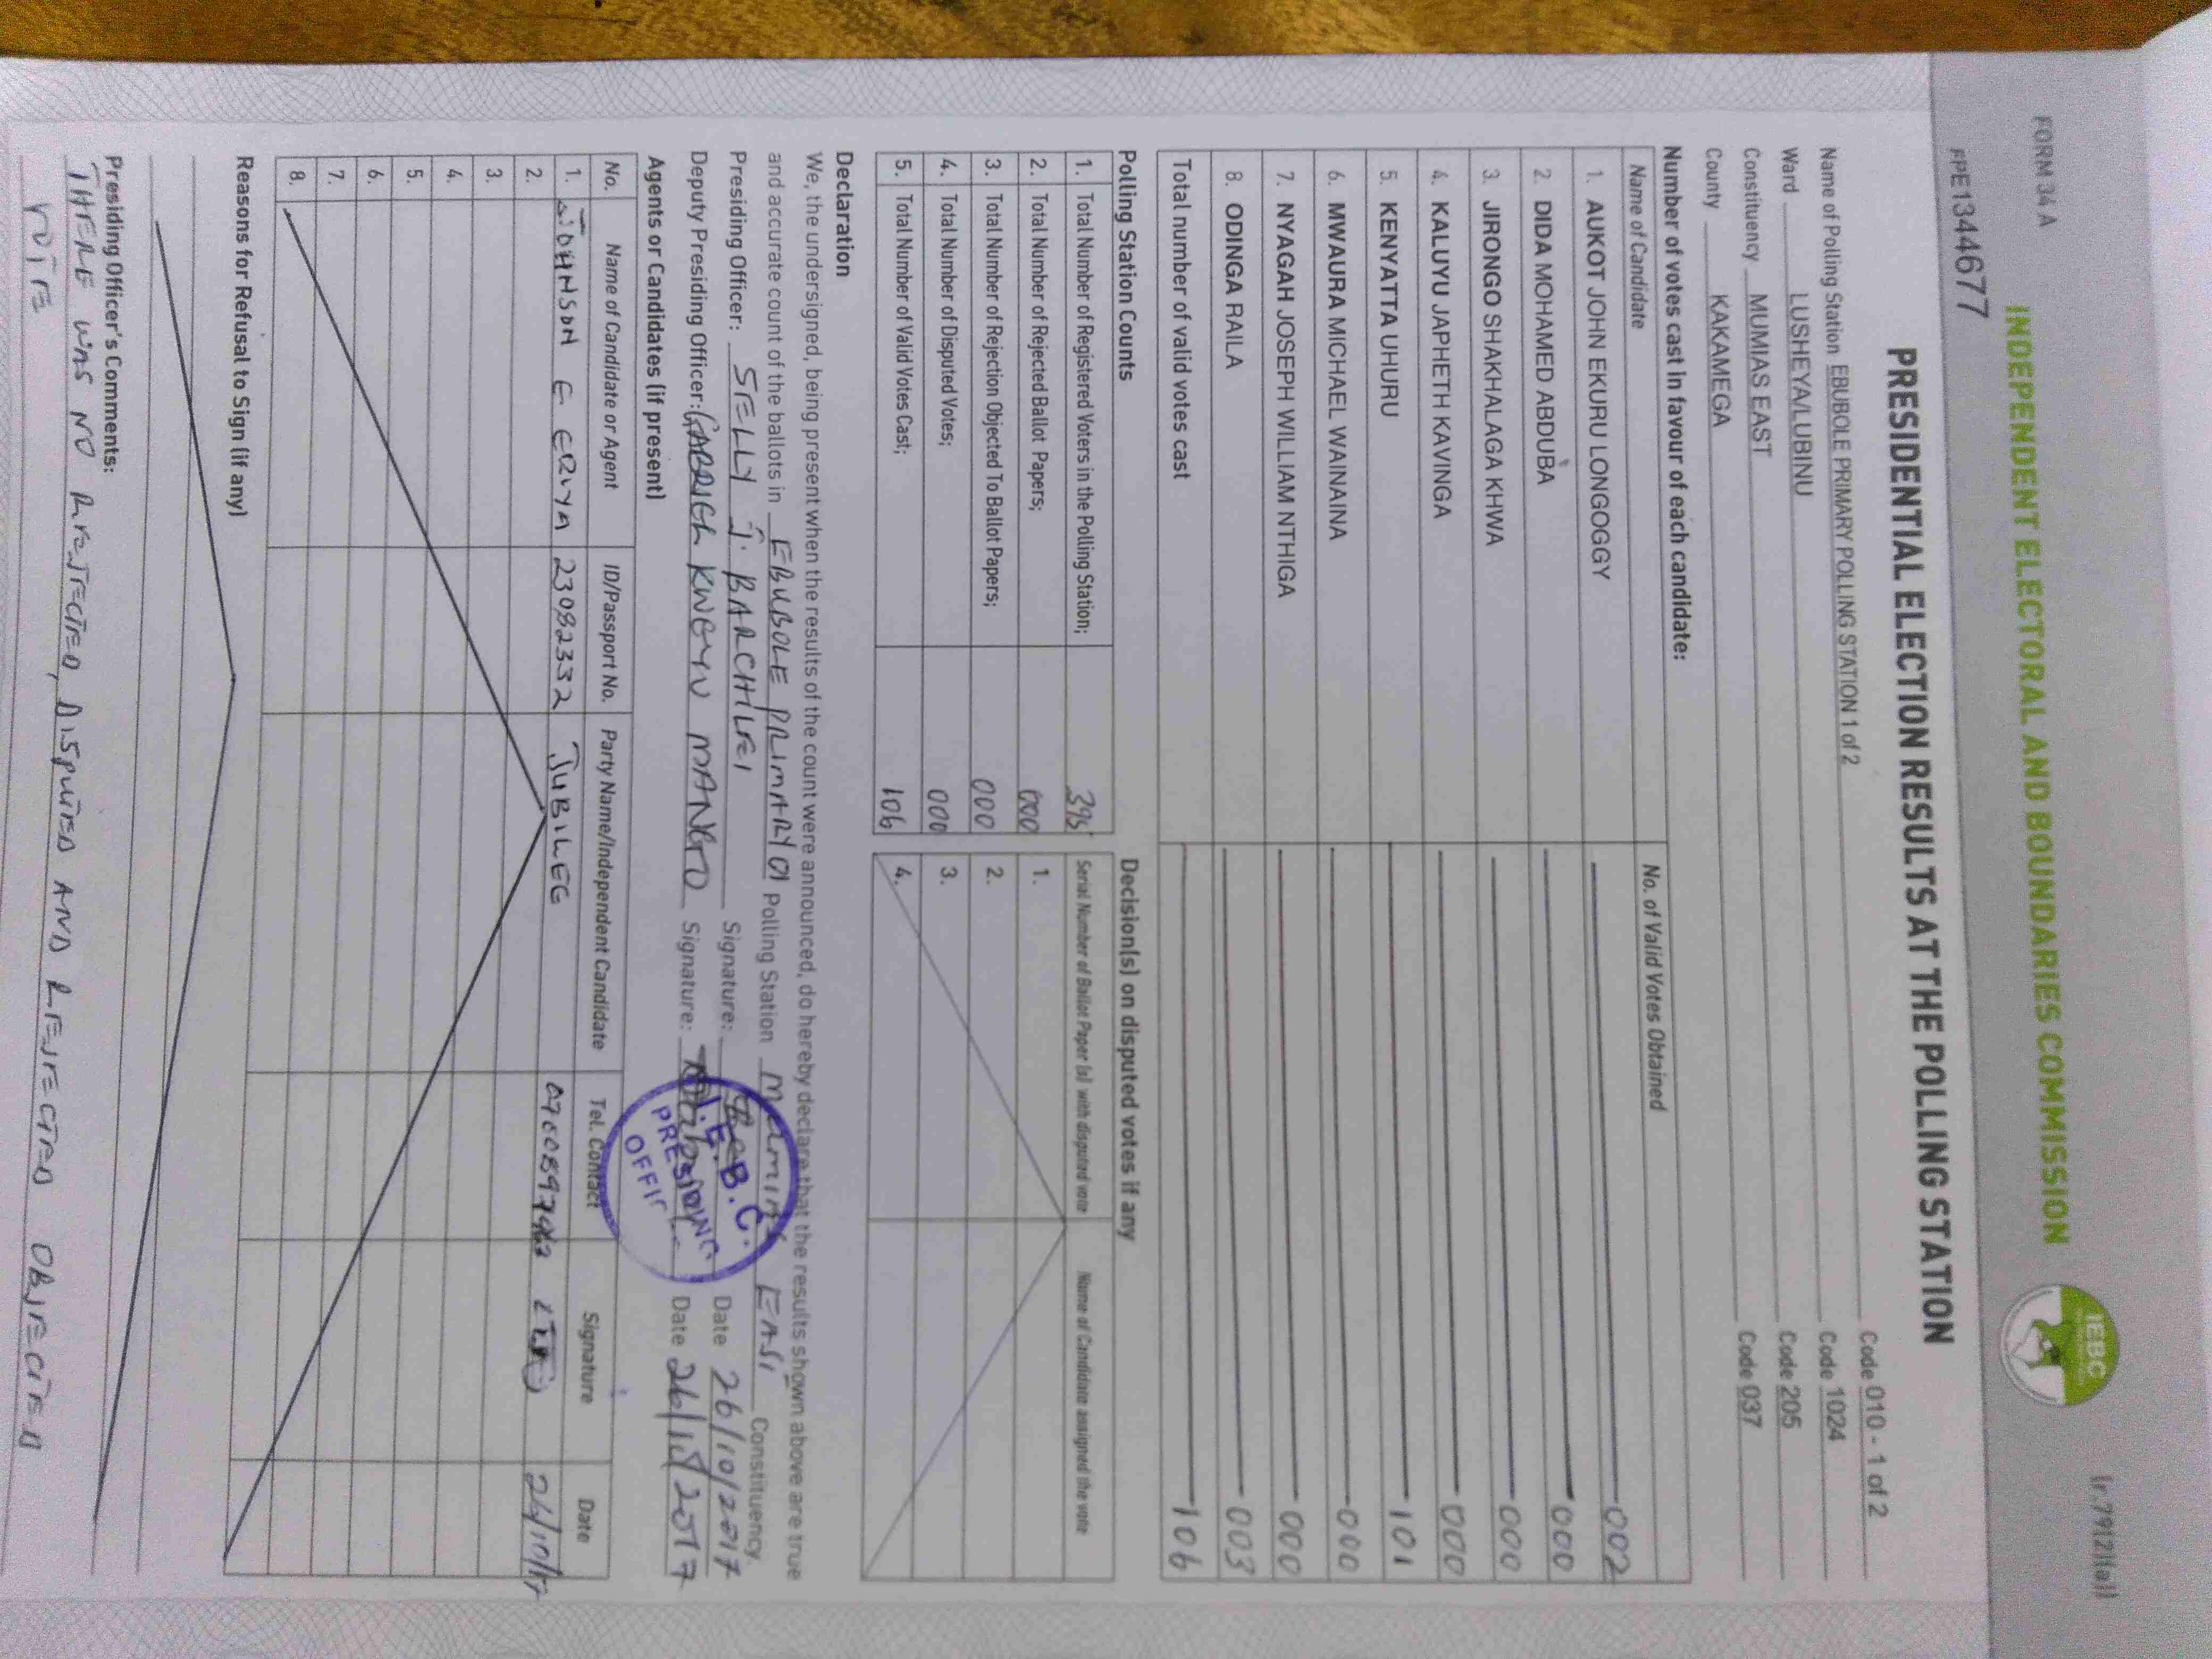 FORM 34 A
[r.79(2)(a)]
INDEPENDENT ELECTORAL AND BOUNDARIES COMMISSION
IEBC
PPE1344677
PRESIDENTIAL ELECTION RESULTS AT THE POLLING STATION
Name of Polling Station EBUBOLE PRIMARY POLLING STATION 1 of 2 Code 010 - 1 of 2
Ward LUSHEYA/LUBINU Code 1024
Constituency MUMIAS EAST Code 205
County KAKAMEGA Code 037
Number of votes cast in favour of each candidate:
Name of Candidate No. of Valid Votes Obtained
1. AUKOT JOHN EKURU LONGOGGY 002
2. DIDA MOHAMED ABDUBA 000
3. JIRONGO SHAKHALAGA KHWA 000
4. KALUYU JAPHETH KAVINGA 000
5. KENYATTA UHURU 101
6. MWAURA MICHAEL WAINAINA 000
7. NYAGAH JOSEPH WILLIAM NTHIGA 000
8. ODINGA RAILA 003
Total number of valid votes cast 106
Polling Station Counts
1. Total Number of Registered Voters in the Polling Station; 395
2. Total Number of Rejected Ballot Papers; 000
3. Total Number of Rejection Objected To Ballot Papers; 000
4. Total Number of Disputed Votes; 000
5. Total Number of Valid Votes Cast; 106
Decision(s) on disputed votes if any
Serial Number of Ballot Paper (s) with disputed vote Name of Candidate assigned the vote
1.
2.
3.
4.
Declaration
We, the undersigned, being present when the results of the count were announced, do hereby declare that the results shown above are true
and accurate count of the ballots in EBUBOLE PRIMARY 01 Polling Station MUMIAS EAST Constituency.
Presiding Officer: SELLY J. BARCHILEI Signature: Date 26/10/2017
Deputy Presiding Officer: GABRIEL KWEYU MANGTO Signature: Date 26/10/2017
I.E.B.C.
PRESIDING
Agents or Candidates (if present)
No. Name of Candidate or Agent ID/Passport No. Party Name/Independent Candidate Tel. Contact Signature Date
1. JOHNSON E ERUYA 23082332 JUBILEE 26/10/17
2.
3.
4.
5.
6.
7.
8.
Reasons for Refusal to Sign (if any)
Presiding Officer's Comments:
THERE WAS NO REJECTED, DISPUTED AND REJECTED OBJECTED
VOTE